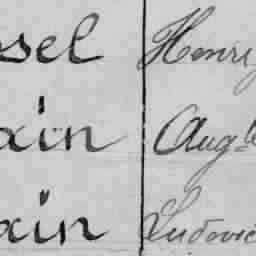 sel Henri
ain Aug
ain Ludovic